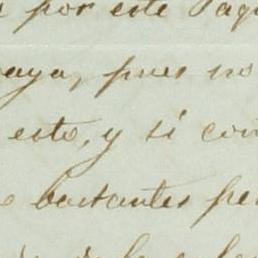 por este Paq
aya, pues no
esto, y si con
bastantes pe
de la